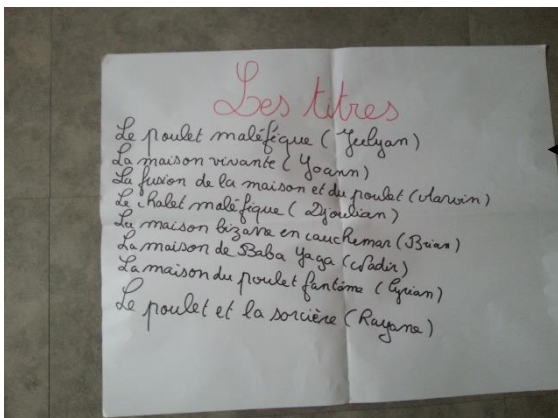 Les titres
Le poulet maléfique (Yulyan)
La maison vivante (Yoann)
La fusion de la maison et du poulet (Marwin)
Le chalet maléfique (Djoulian)
La maison bizarre en cauchemar (Brian)
La maison de Baba Yaga (Nadir)
La maison du poulet fantôme (Cyrian)
Le poulet et la sorcière (Rayane)